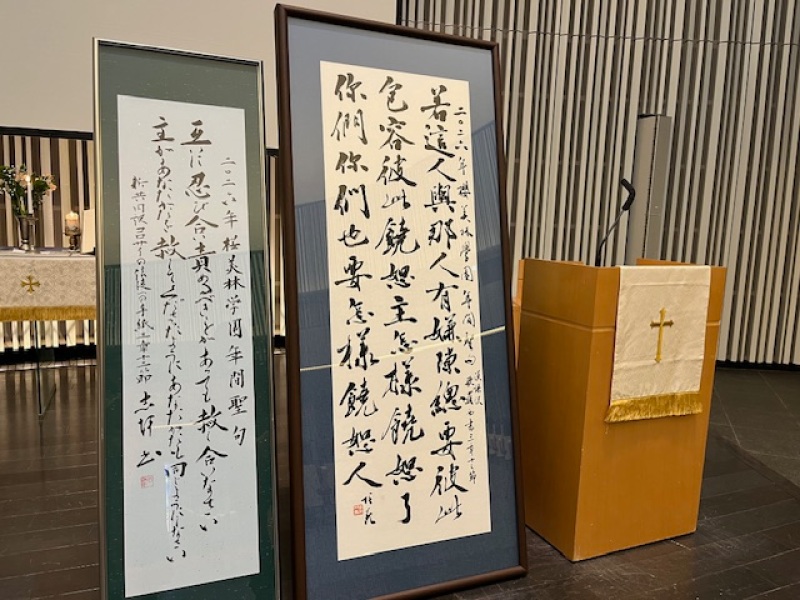 二〇二六年 桜美林学園年間聖句
互に忍び合い責めるべきことがあっても赦し合いなさい
主があなたがたを赦してくださったようにあなたがたも同じようにしなさい
新共同訳コロサイの信徒への手紙三章十三節
二〇二六年櫻美林学園 年間聖句 三章十三節
若這人與那人有嫌隙總要彼此
包容彼此饒恕主怎樣饒恕了
你們你們也要怎樣饒恕人